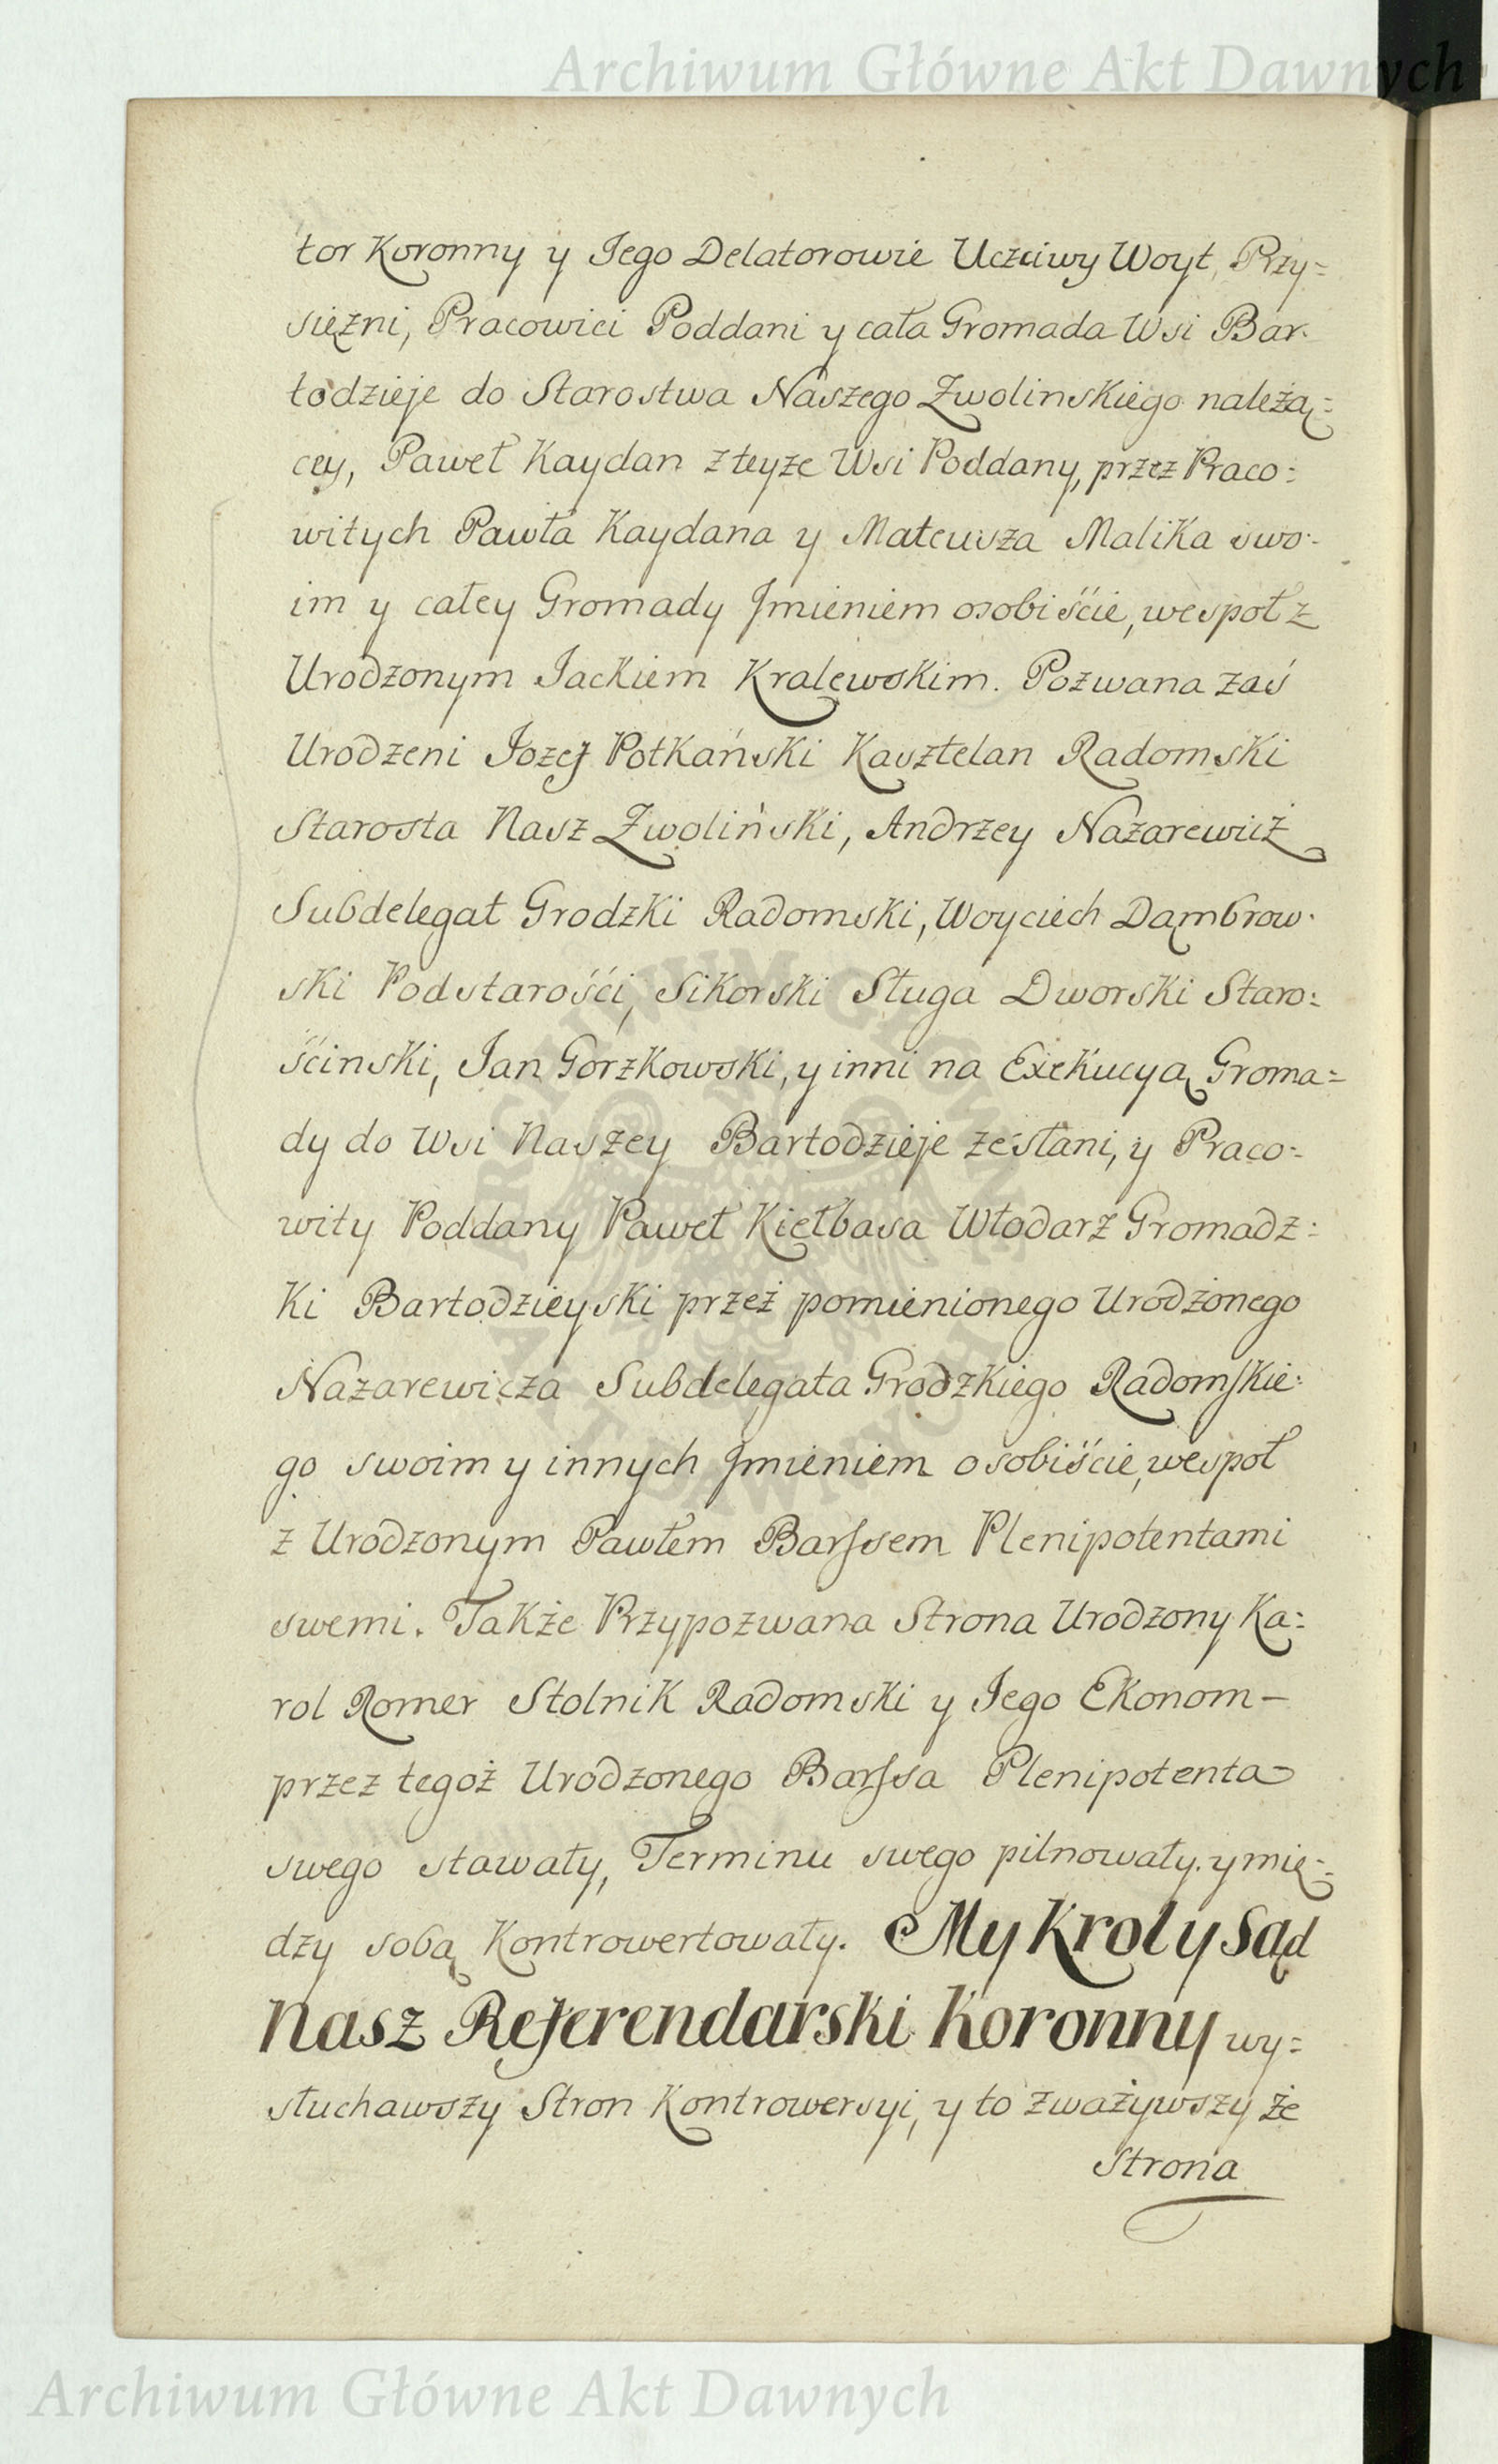 Archiwum Główne Akt Dawnych
tor Koronny y Jego Delatorowie Uczciwy Woyt, Przy=
siężni, Pracowici Poddani y cała Gromada Wsi Bar-
todzieje do Starostwa Naszego Zwolinskiego należą=
cey, Paweł Kaydan z teyże Wsi Poddany, przez Praco=
witych Pawła Kaydana y Mateusza Malika swo-
im y całey Gromady Jmieniem osobiście, wespoł z
Urodzonym Jackiem Kralewskim. Pozwana zaś
Urodzeni Jozef Potkański Kasztelan Radomski
Starosta Nasz Zwoliński, Andrzey Nazarewicz
Subdelegat Grodzki Radomski, Woyciech Dąmbrow-
ski Podstarości, Sikorski Sługa Dworski Staro=
ścinski, Jan Gorzkowski, y inni na Exekucyą Groma=
dy do Wsi Naszey Bartodzieje zesłani, y Praco=
wity Poddany Paweł Kiełbasa Włodarz Gromadz=
ki Bartodzieyski przez pomienionego Urodzonego
Nazarewicza Subdelegata Grodzkiego Radomskie=
go swoim y innych Jmieniem osobiście, wespoł
z Urodzonym Pawłem Barssem Plenipotentami
swemi. Także Przypozwana Strona Urodzony Ka=
rol Romer Stolnik Radomski y Jego Ekonom –
przez tegoż Urodzonego Barssa Plenipotenta
swego stawały, Terminu swego pilnowały. y mię=
dzy sobą Kontrowertowały. My Krol y Sąd
Nasz Referendarski Koronny wy=
słuchawszy Stron Kontrowersyi, y to zważywszy że
Strona
Archiwum Główne Akt Dawnych